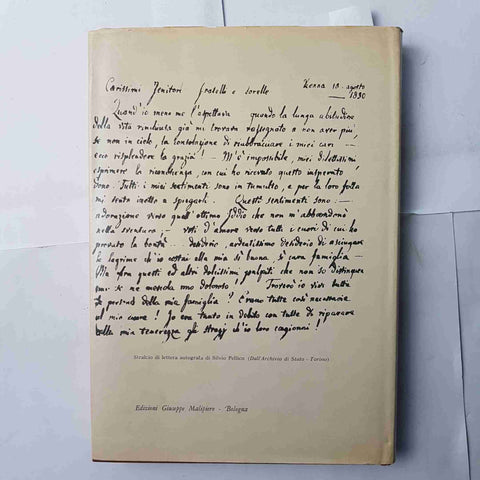 Carissimi Genitori fratelli e sorelle Vienna 18. agosto
1830
Quand'io meno me l'aspettava quando la lunga abitudine
della vita rinchiusa già mi trovava rassegnato a non aver più,
se non in cielo, la consolazione di riabbracciare i miei cari —
ecco risplendere la grazia! — M'è impossibile, miei dilettissimi
esprimere la riconoscenza, con cui ho ricevuto questo insperato
dono. Tutti i miei sentimenti sono in tumulto, e per la loro folla
mi sento inetto a spiegarli. Questi sentimenti sono: —
adorazione verso quell'ottimo Iddio che non m'abbandonò
nella sventura; — voti d'amore verso tutti i cuori di cui ho
provato la bontà — desiderio, ardentissimo desiderio di asciugare
le lagrime ch'io costai alla mia sì buona, sì cara famiglia —
Ma fra questi ed altri dolcissimi palpiti che non so distinguere
uno se ne mescola uno doloroso! Troverò io vivi tutte
le persone della mia famiglia? Erano tutte così necessarie
al mio cuore! Io era tanto in debito con tutte di riparare
colla mia tenerezza gli strazj ch'io loro cagionai!
Stralcio di lettera autografa di Silvio Pellico (Dall'Archivio di Stato - Torino)
Edizioni Giuseppe Malipiero - Bologna